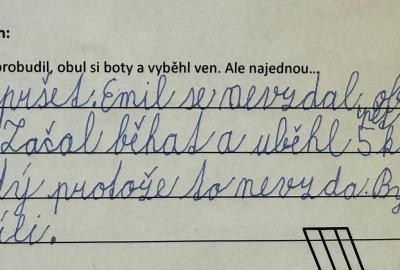 n:
probudil, obul si boty a vyběhl ven. Ale najednou...
pršet. Emil se nevzdal, ob
než
Začal běhat a uběhl 5 k
dý protože to nevzda. By
íli.